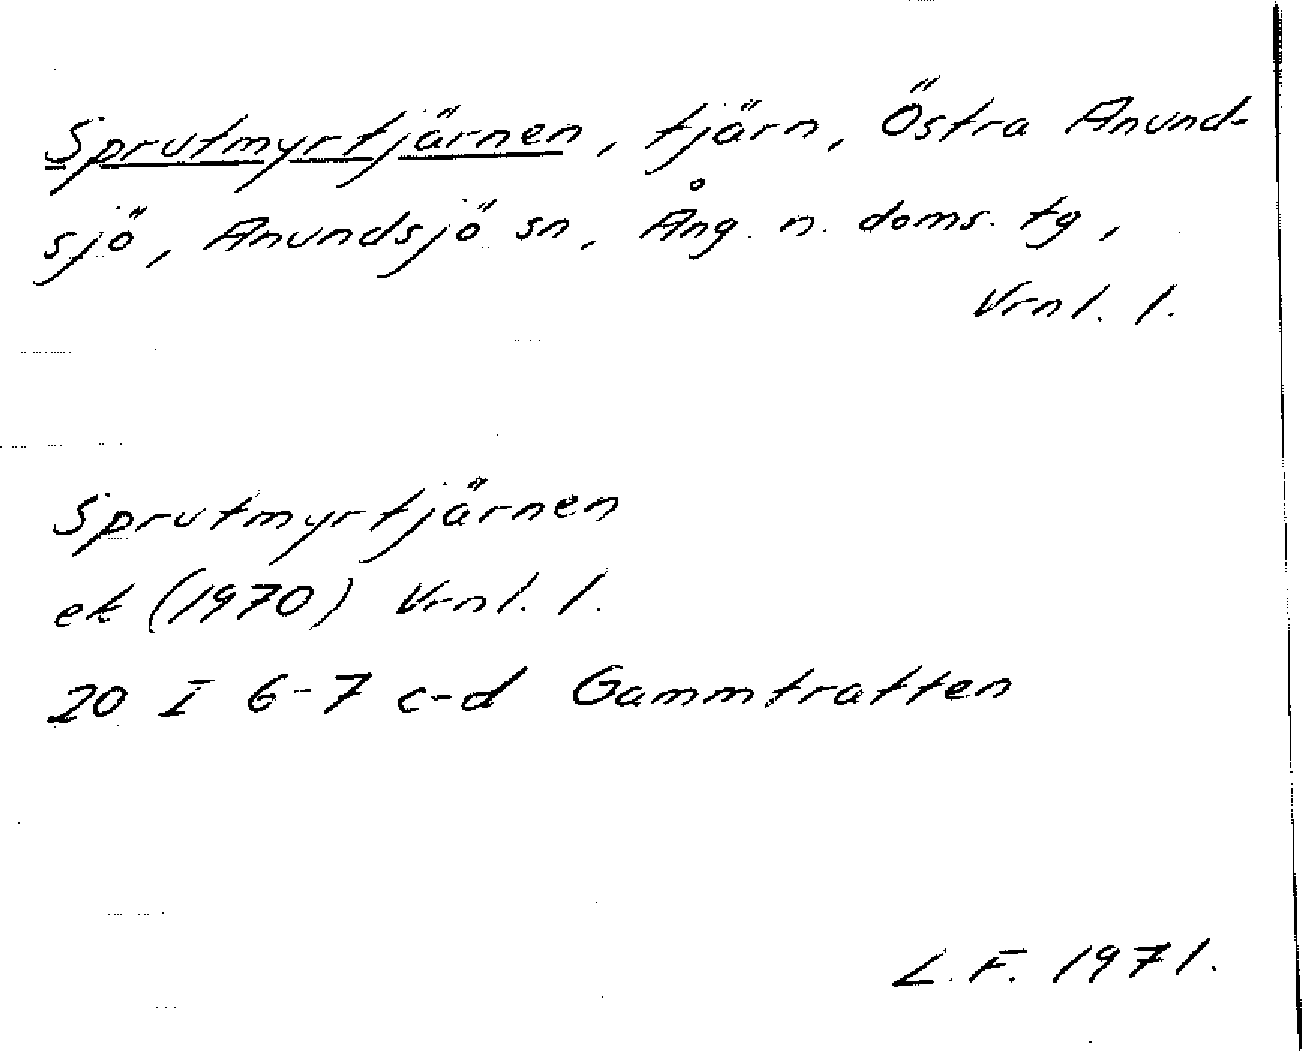 Sprutmyrtjärnen, tjärn, Östra Anund-
sjö, Anundsjö sn, Ång. n. doms. tg,
Vrnl. l.
Sprutmyrtjärnen
ek (1970) Vrnl. l.
20 I 6-7 c-d Gammtratten
L.F. 1971.